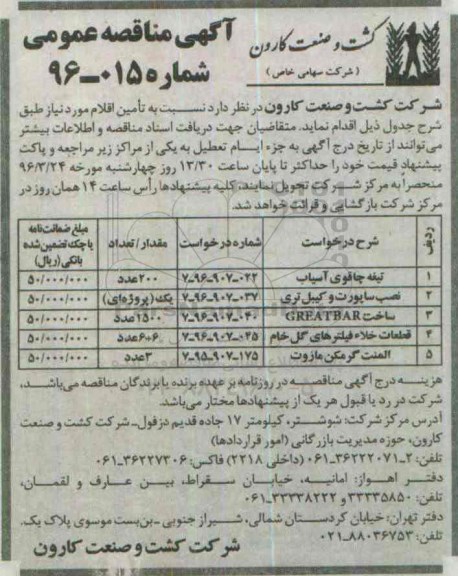 آگهی مناقصه عمومی
شماره ۰۱۵-۹۶
کشت و صنعت کارون
( شرکت سهامی خاص )
شرکت کشت و صنعت کارون در نظر دارد نسبت به تأمین اقلام مورد نیاز طبق
شرح جدول ذیل اقدام نماید. متقاضیان جهت دریافت اسناد مناقصه و اطلاعات بیشتر
می‌توانند از تاریخ درج آگهی به جزء ایام تعطیل به یکی از مراکز زیر مراجعه و پاکت
پیشنهاد قیمت خود را حداکثر تا پایان ساعت ۱۳/۳۰ روز چهارشنبه مورخه ۹۶/۳/۲۴
منحصراً به مرکز شرکت تحویل نمایند. کلیه پیشنهادها رأس ساعت ۱۴ همان روز در
مرکز شرکت بازگشایی و قرائت خواهد شد.
ردیف شرح درخواست شماره درخواست مقدار/تعداد مبلغ ضمانت‌نامه یا چک تضمین شده بانکی (ریال)
۱ تیغه چاقوی آسیاب ۷-۹۶-۹۰۷-۰۲۲ ۲۰۰ عدد ۵۰/۰۰۰/۰۰۰
۲ نصب ساپورت و کیبل تری ۷-۹۶-۹۰۷-۰۳۷ یک (پروژه‌ای) ۵۰/۰۰۰/۰۰۰
۳ ساخت GREATBAR ۷-۹۶-۹۰۷-۰۴۰ ۱۵۰۰ عدد ۵۰/۰۰۰/۰۰۰
۴ قطعات خلاء فیلترهای گل خام ۷-۹۶-۹۰۷-۰۴۵ ۶+۶ عدد ۵۰/۰۰۰/۰۰۰
۵ المنت گرمکن مازوت ۷-۹۵-۹۰۷-۱۷۵ ۳ عدد ۵۰/۰۰۰/۰۰۰
هزینه درج آگهی مناقصه در روزنامه بر عهده برنده یا برندگان مناقصه می‌باشد،
شرکت در رد یا قبول هر یک از پیشنهادها مختار می‌باشد.
آدرس مرکز شرکت: شوشتر، کیلومتر ۱۷ جاده قدیم دزفول- شرکت کشت و صنعت
کارون، حوزه مدیریت بازرگانی (امور قراردادها)
تلفن: ۲-۳۶۲۲۲۰۷۱-۰۶۱ (داخلی ۲۲۱۸) فاکس: ۳۶۲۲۷۳۰۶-۰۶۱
دفتر اهواز: امانیه، خیابان سقراط، بین عارف و لقمان،
تلفن: ۳۳۳۳۵۸۵۰ و ۳۳۳۳۸۲۲۲-۰۶۱
دفتر تهران: خیابان کردستان شمالی، شیراز جنوبی - بن‌بست موسوی پلاک یک.
تلفن: ۸۸۰۳۶۷۵۳-۰۲۱
شرکت کشت و صنعت کارون